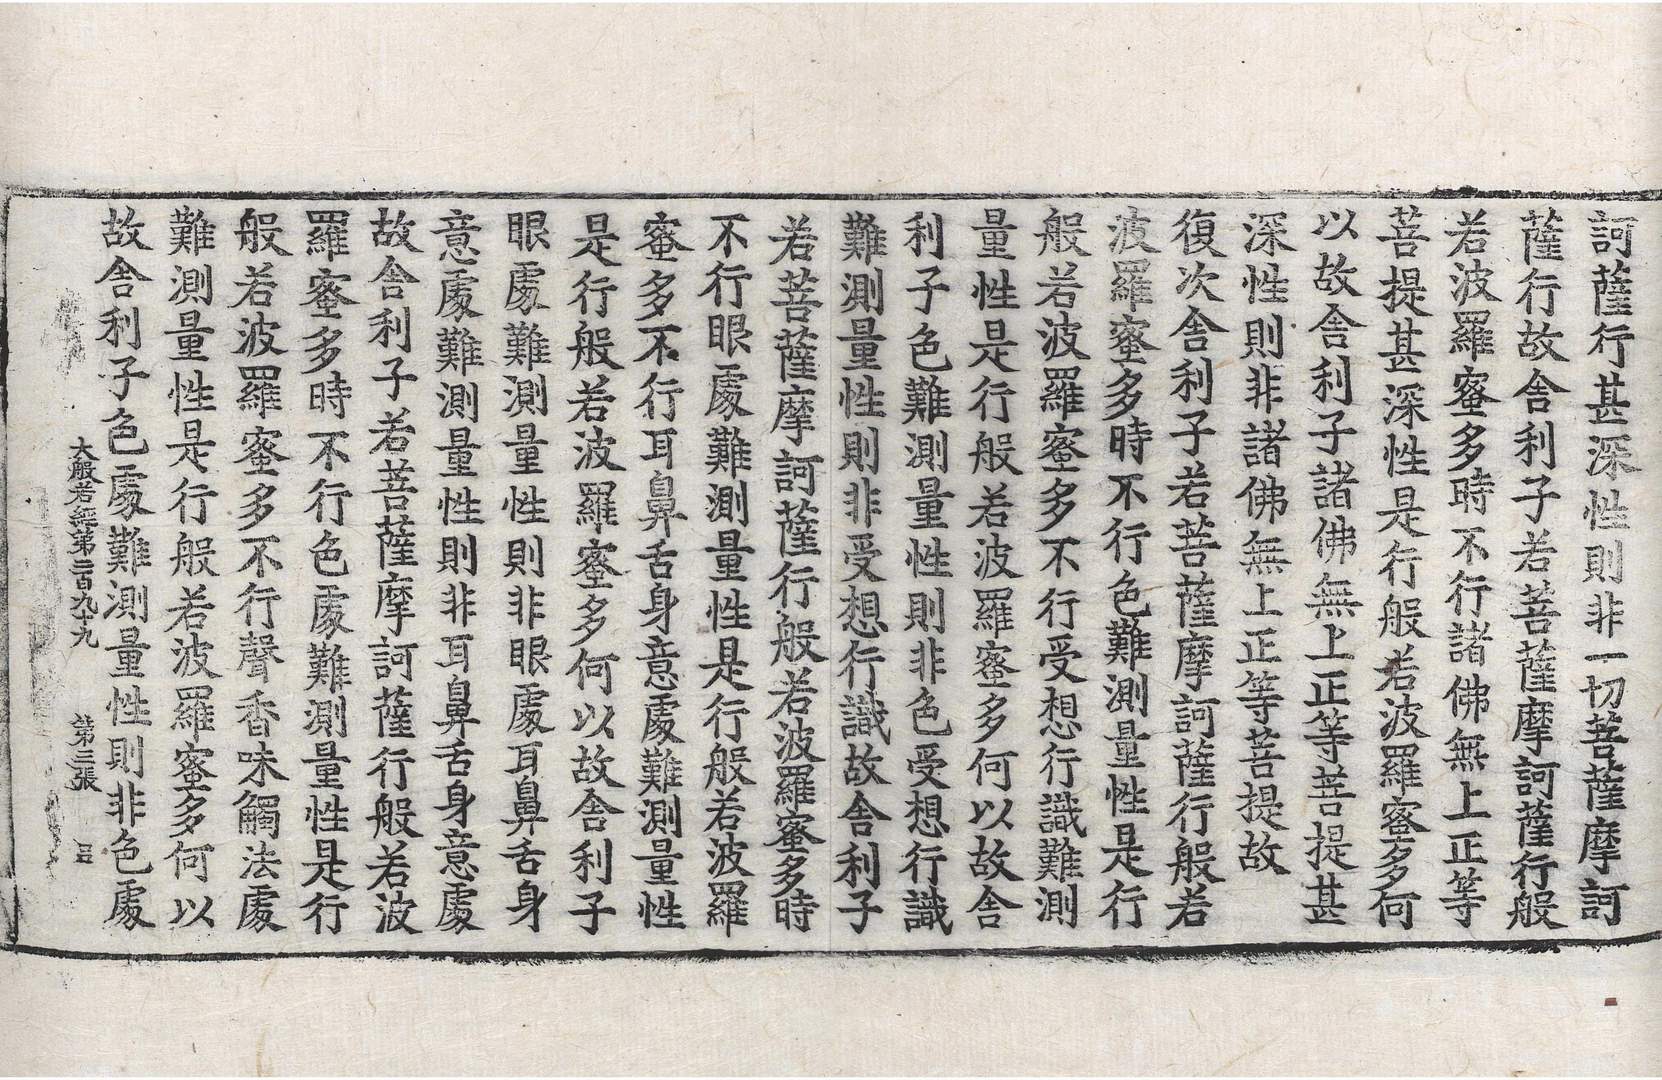 訶薩行甚深性則非一切菩薩摩訶
薩行故舍利子若菩薩摩訶薩行般
若波羅蜜多時不行諸佛無上正等
菩提甚深性是行般若波羅蜜多何
以故舍利子諸佛無上正等菩提甚
深性則非諸佛無上正等菩提故
復次舍利子若菩薩摩訶薩行般若
波羅蜜多時不行色難測量性是行
般若波羅蜜多不行受想行識難測
量性是行般若波羅蜜多何以故舍
利子色難測量性則非色受想行識
難測量性則非受想行識故舍利子
若菩薩摩訶薩行般若波羅蜜多時
不行眼處難測量性是行般若波羅
蜜多不行耳鼻舌身意處難測量性
是行般若波羅蜜多何以故舍利子
眼處難測量性則非眼處耳鼻舌身
意處難測量性則非耳鼻舌身意處
故舍利子若菩薩摩訶薩行般若波
羅蜜多時不行色處難測量性是行
般若波羅蜜多不行聲香味觸法處
難測量性是行般若波羅蜜多何以
故舍利子色處難測量性則非色處
大般若經第二百九十九 第三張